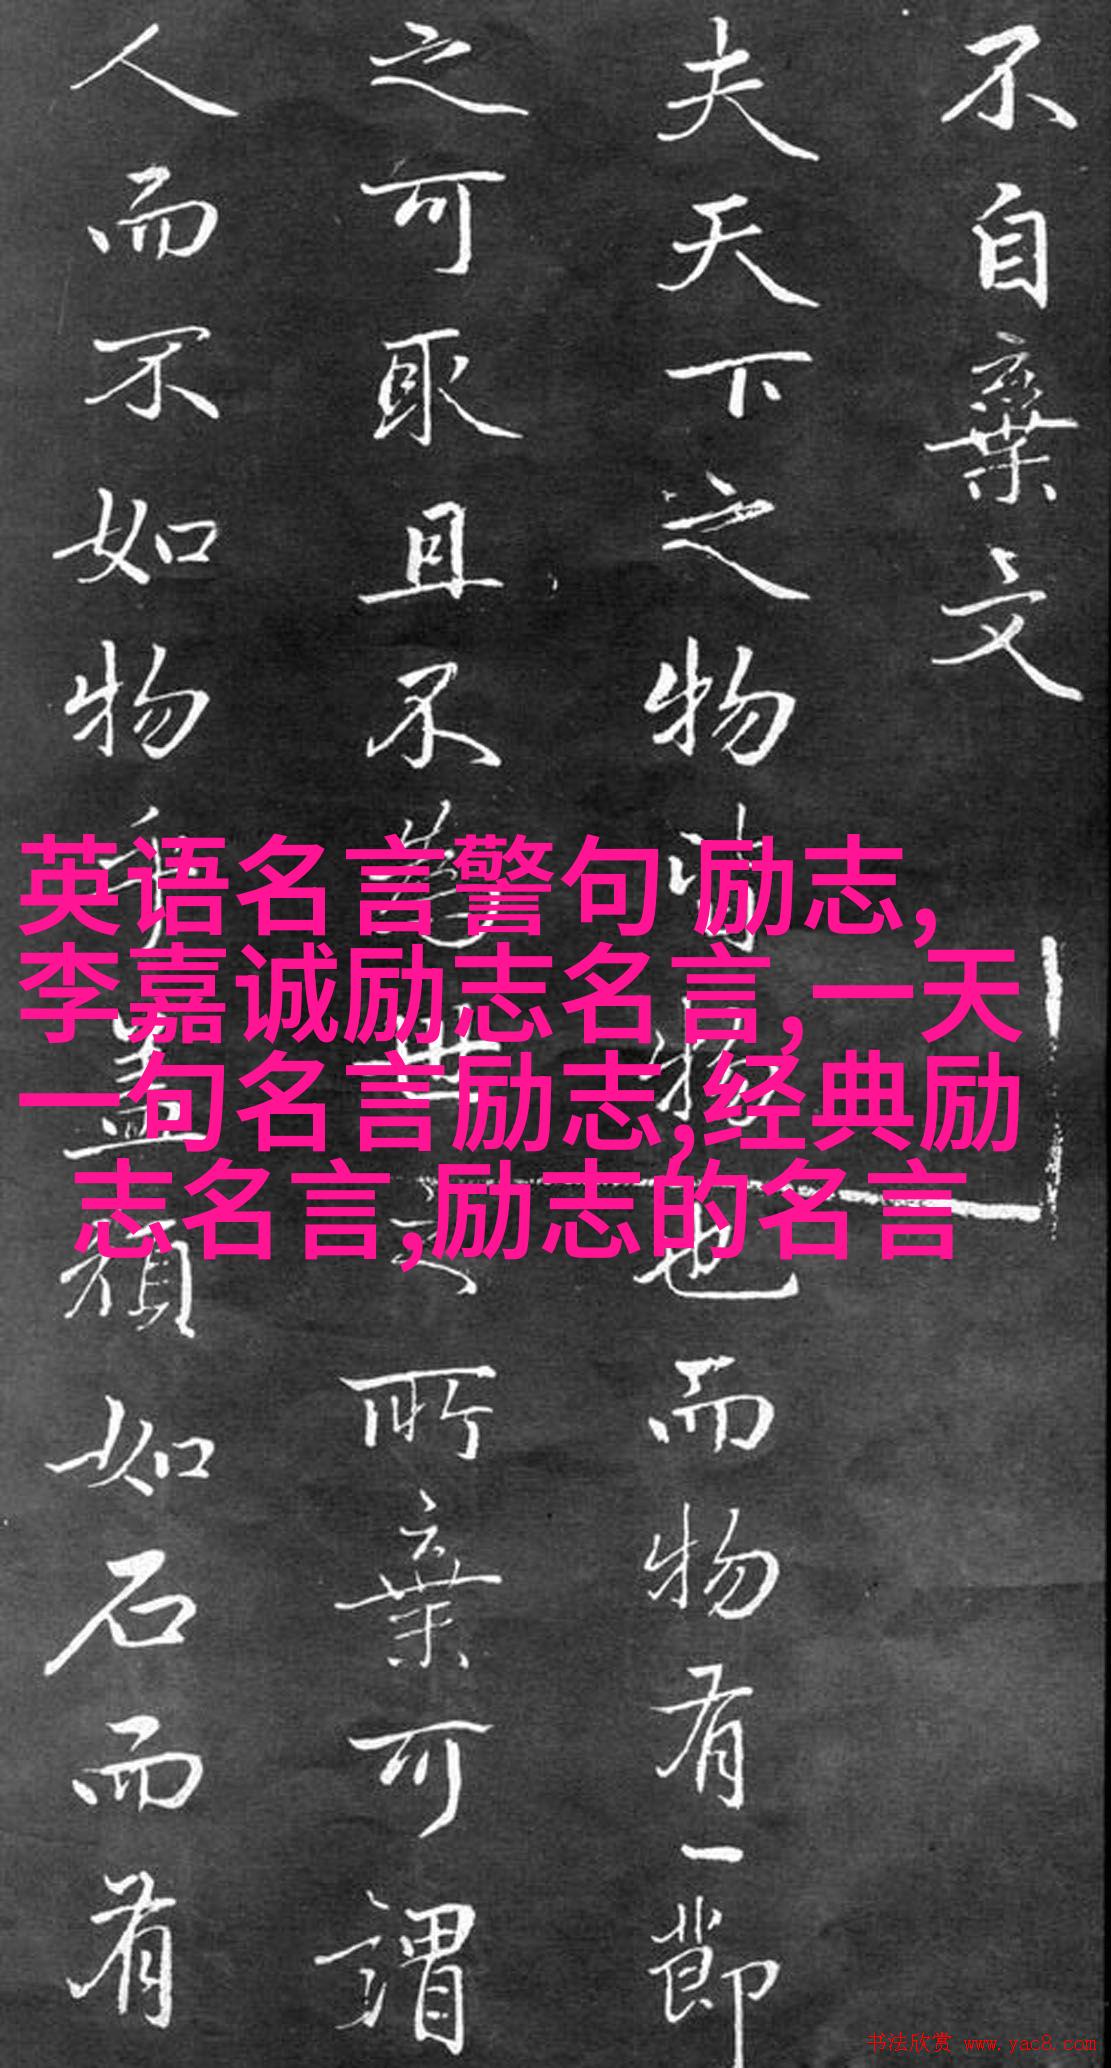 不自棄文
夫天下之物皆物也而物有一節
之可取且不為世之所棄可謂
人而不如物乎蓋頑如石而有
英语名言警句 励志,
李嘉诚励志名言, 一天
一句名言励志,经典励
志名言,励志的名言
书法欣赏 www.yac8.com